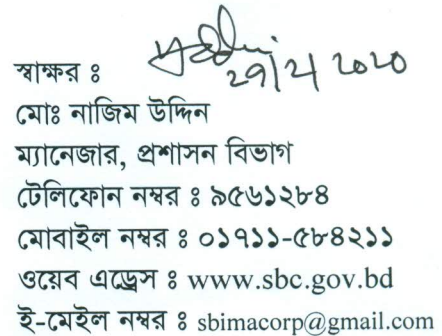 স্বাক্ষর ঃ
29/2/2020
মোঃ নাজিম উদ্দিন
ম্যানেজার, প্রশাসন বিভাগ
টেলিফোন নম্বর ঃ ৯৫৬১২৮৪
মোবাইল নম্বর ঃ ০১৭১১-৫৮৪২১১
ওয়েব এড্রেস ঃ www.sbc.gov.bd
ই-মেইল নম্বর ঃ sbimacorp@gmail.com